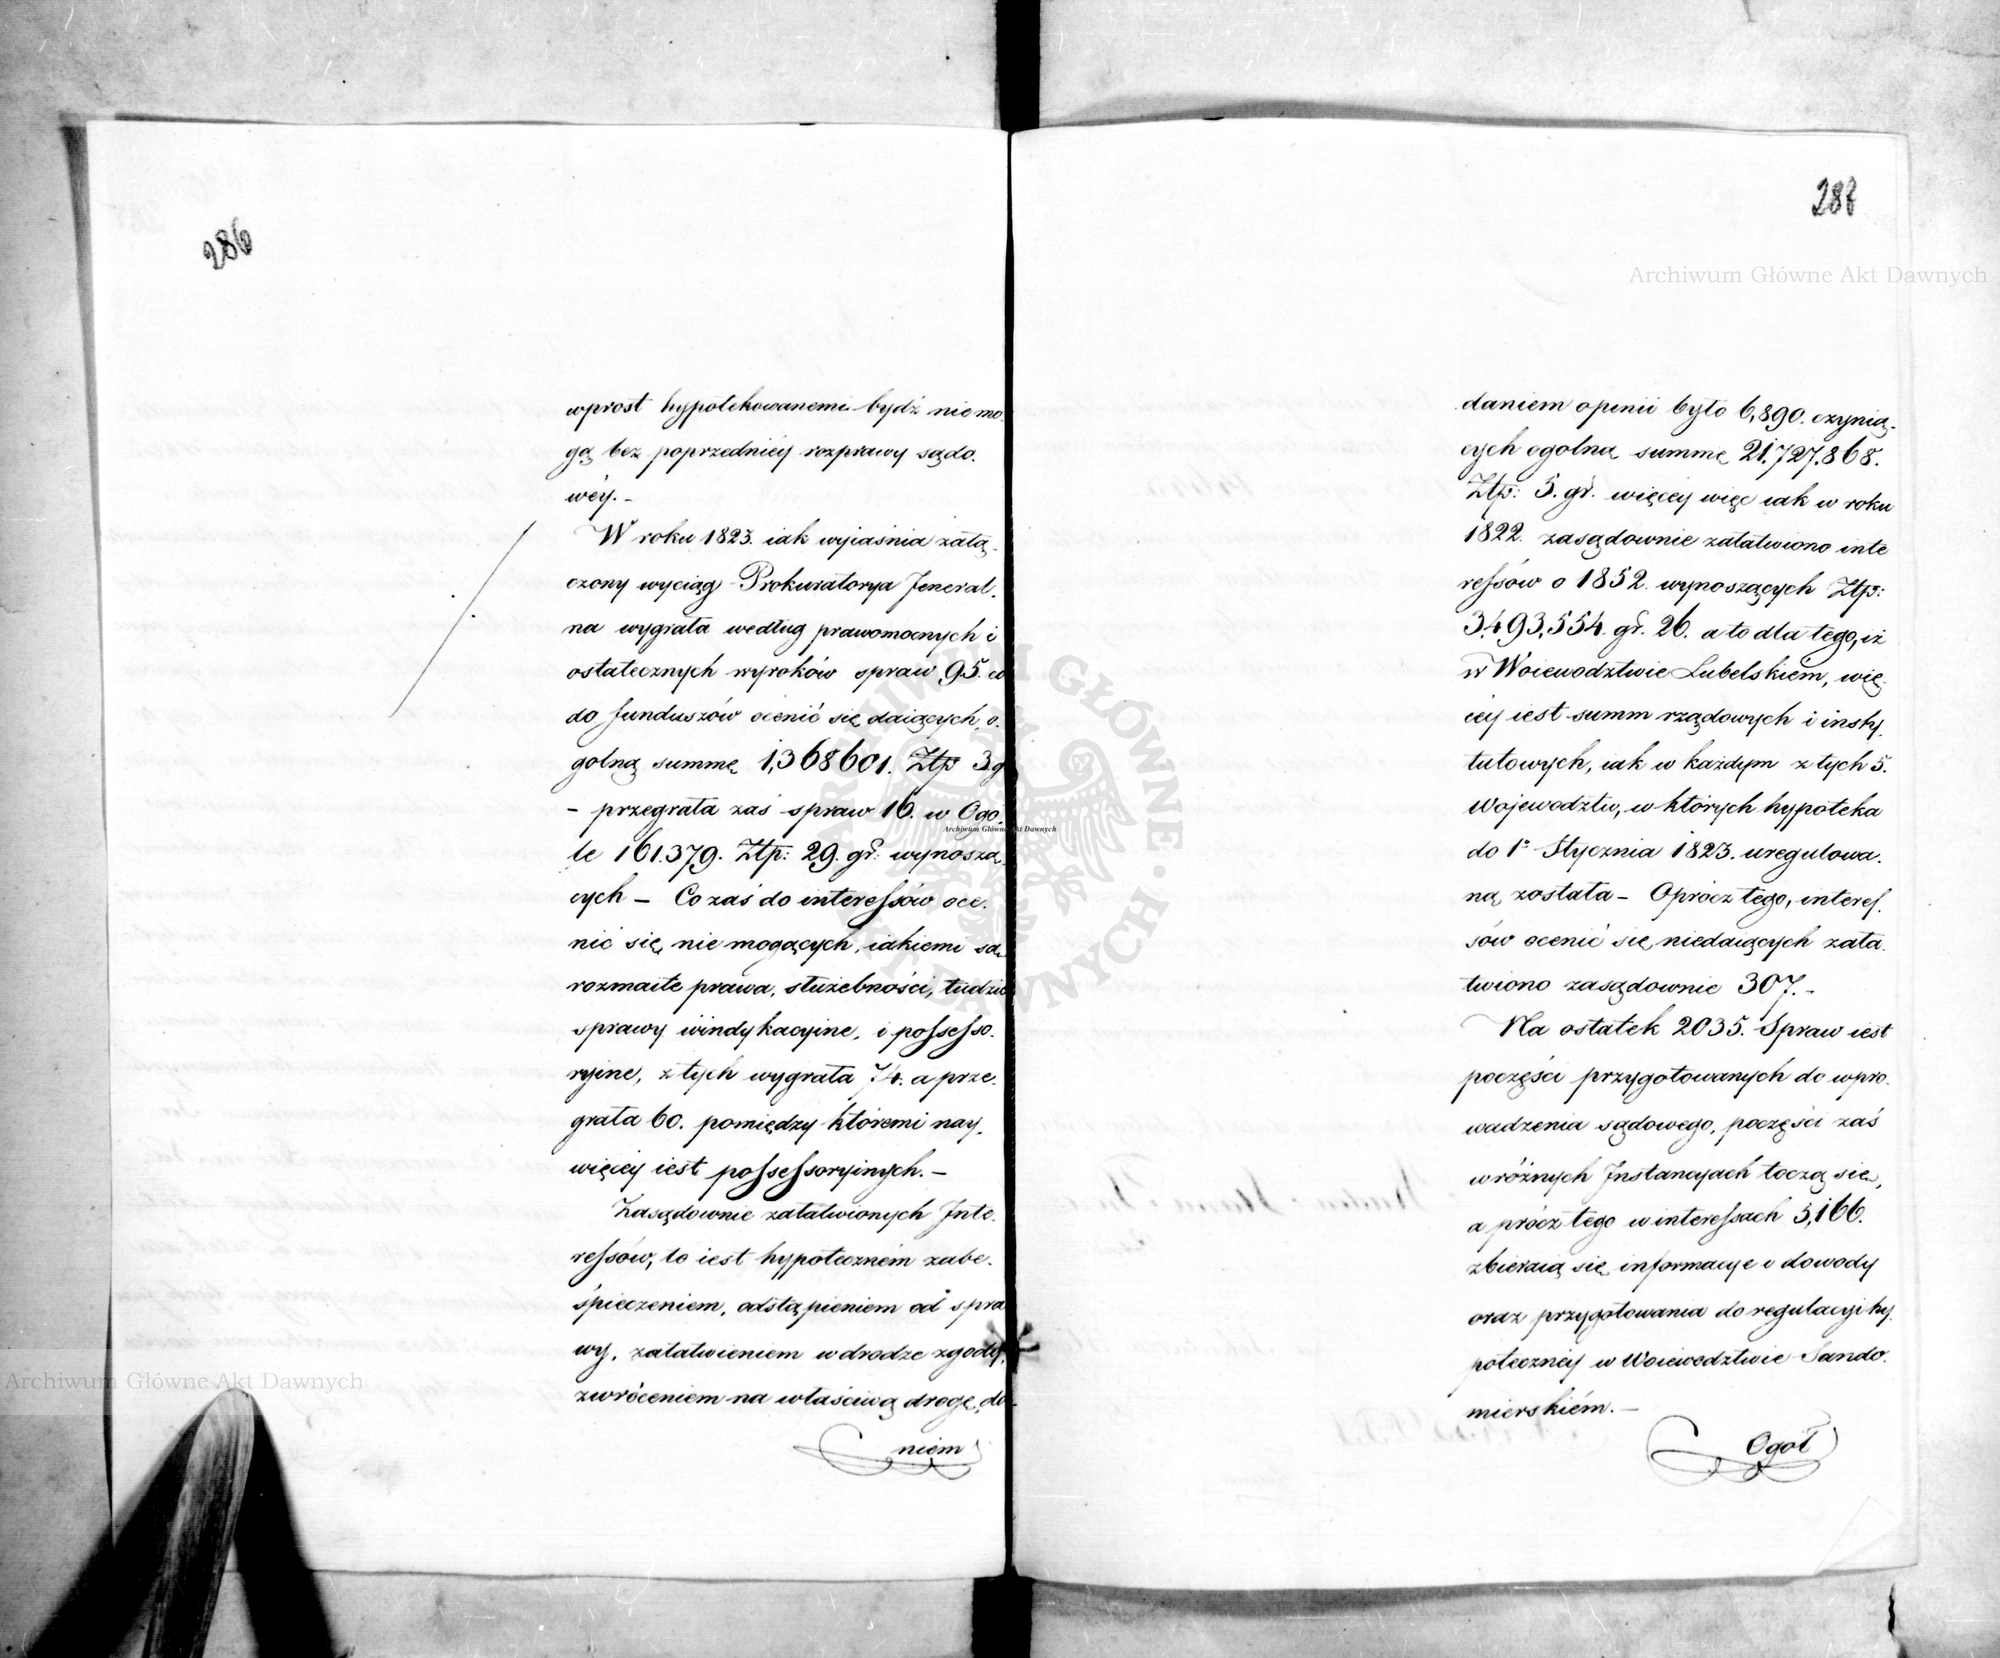 286
wprost hypotekowanemi bydź nie mo
gą bez poprzedniéy rozprawy sądo.
wéy. –
W roku 1823. iak wyiaśnia załą.
czony wyciąg Prokuratorya Jeneral.
na wygrała według prawomocnych i
ostatecznych wyroków spraw 95. co
do funduszów ocenić się daiących, o.
golną summę 1,368601. Ztp 3 g
– przegrała zaś spraw 16. w Ogo.
le 161.379. Ztp: 29. gr: wynoszą
cych – Co zaś do interessów oce.
nić się nie mogących, iakiemi są
rozmaite prawa, służebności, tudzie
sprawy windykacyine, i possesso.
ryine, z tych wygrała 74. a prze.
grała 60. pomiędzy któremi nay.
więcéy iest possessoryinych. –
Zasądownie załatwionych Inte.
ressów, to iest hypoteczném zabe.
śpieczeniem, odstąpieniem od spra
wy, załatwieniem w drodze zgody,
zwróceniem na właściwą drogę, da
niem
288
Archiwum Główne Akt Dawnych
daniem opinii było 6,890. czynią.
cych ogolną summę 21.727.868.
Ztp: 5. gr. więcéy więc iak w roku
1822. zasądownie załatwiono inte
ressów o 1852. wynoszących Ztp:
3.493,554. gr. 26. a to dla tego, iż
w Woiewodztwie Lubelskiém, wię.
céy iest summ rządowych i insty.
tutowych, iak w każdym z tych 5.
Wojewodztw, w których hypoteka
do 1o Stycznia 1823. uregulowa.
ną została – Oprócz tego, interes.
sów ocenić się niedaiących zała.
twiono zasądownie 307. –
Na ostatek 2035. Spraw iest
poczęści przygotowanych do wpro.
wadzenia sądowego, poczęści zaś
w różnych Instancyach toczą się,
a prócz tego w interessach 5,166.
zbieraią się informacye i dowody
oraz przygotowania do regulacyi hy.
potecznéy w Woiewodztwie Sando.
mierskiém. –
Ogół
Archiwum Główne Akt Dawnych
ARCHIWUM GŁÓWNE AKT DAWNYCH
Archiwum Główne Akt Dawnych